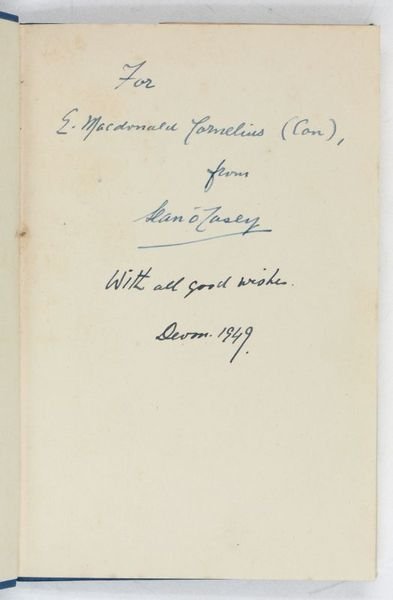 For
E. Macdonald Cornelius (Con),
from
Sean O'Casey
With all good wishes.
Devon. 1949.